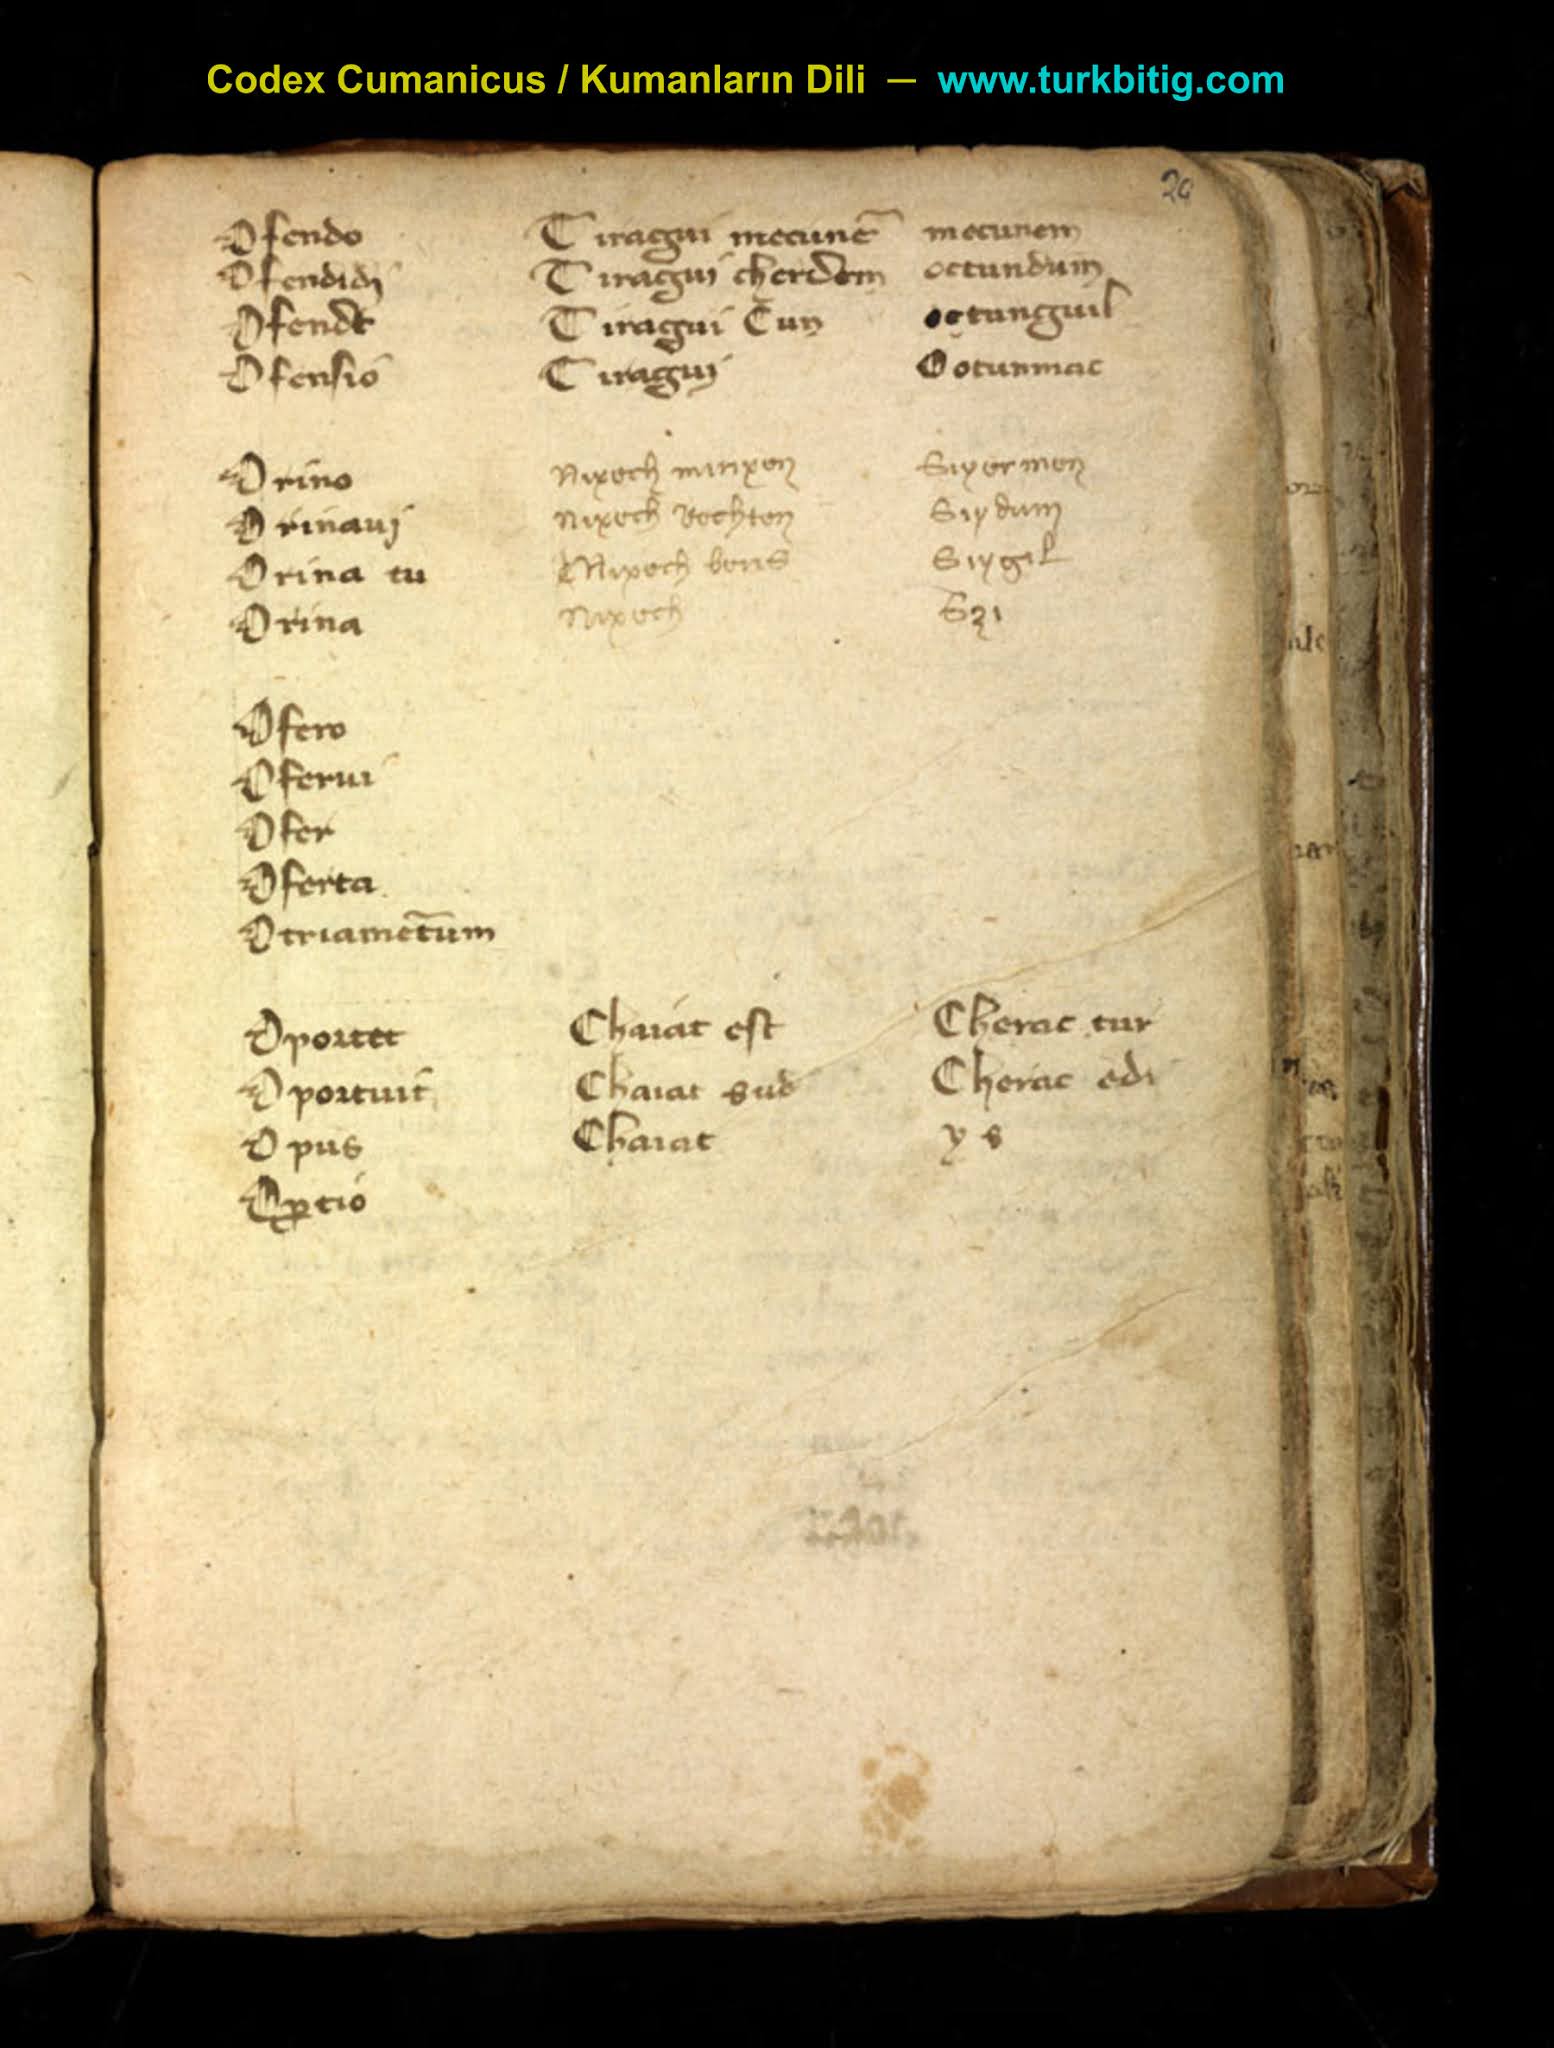 Codex Cumanicus / Kumanların Dili — www.turkbitig.com
20
Ofendo Tiragui mecunē mecunem
Ofendidi Tiragui cherdem octundum
Ofende Tiragui Cun octunguil
Ofensio Tiragui Ootunmac
Orino Nixech minxen Siyermen
Orinaui Nixech Rechten Siydum
Orina tu Nixech beris Siygil
Orina Nixech
Ofero
Oferui
Ofer
Oferta
Otriametūm
Oportet Chaiat est Cherac tur
Oportuit Chaiat sud Cherac edi
Opus Chaiat ys